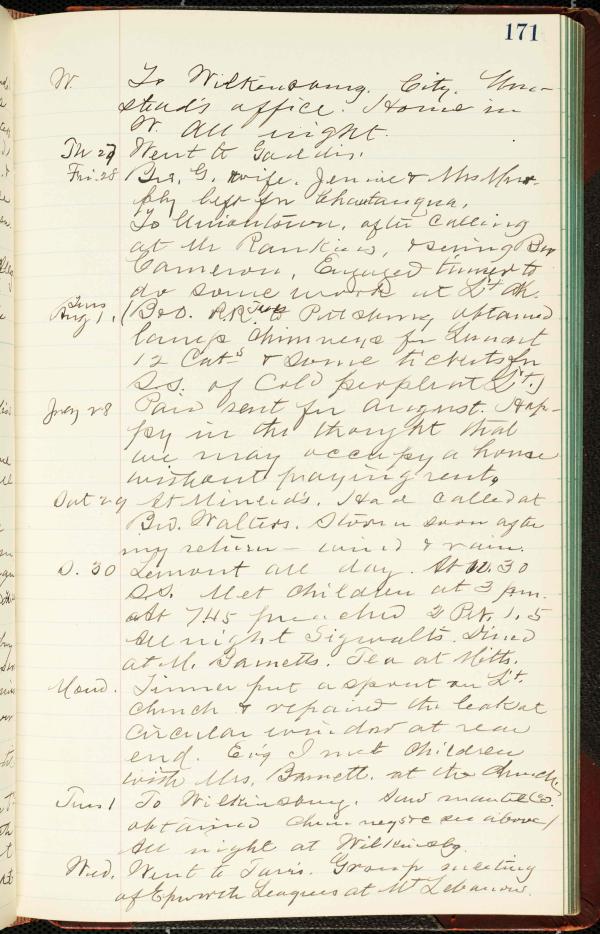 171
W. To Wilkinsburg. City. Um-
stead's office. Home in
W. All night.
Th 27 Went to Gaddis.
Fri. 28 Bro. G. wife. Jennie & Mrs Mur-
phy left for Chautauqua.
To Uniontown, after calling
at Mr Rankins, & seeing Bro
Cameron, Engaged tinner to
do some work at Lt. Ch.
Tues Aug 1. (Bro. R.R. to Pittsburg obtained
lamp chimneys for Lemont
12 Cats & some tickets for
S.S. of Cold people at Lt.)
28 Paid rent for August. Hap-
py in the thought that
we may occupy a house
without paying rent.
Sat 29 At Minerd's. Had called at
Bro. Walters. Storm soon after
my return - wind & rain.
S. 30 Lemont all day. At 10.30
S.S. Met children at 3 p.m.
At 7.45 preached 2 Pet. 1.5
All night Sigwalts. Dined
at M. Barnetts. Tea at Mitts.
Mond. Tinner put a spout on Lt.
church & repaired the leak at
circular window at rear
end. Ev'g I met children
with Mrs. Barnett. at the Church
Tues 1 To Wilkinsburg.
obtained chimneys &c see above)
All night at Wilkinsbg.
Wed. Went to Tarrs. Group meeting
of Epworth Leagues at Mt Lebanon.